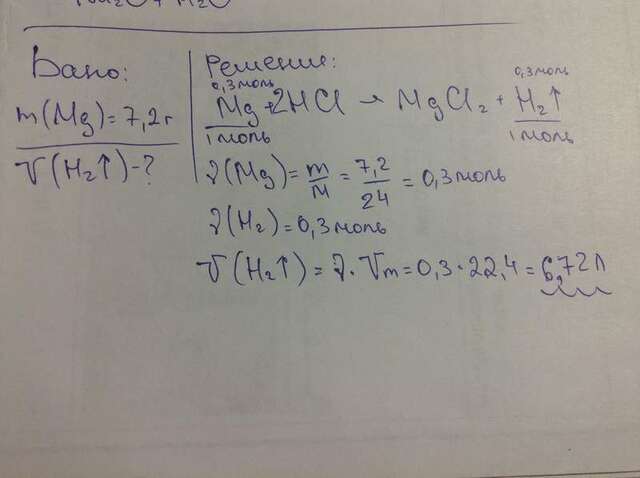 Дано:
m(Mg)=7,2г
V(H₂↑)-?
Решение:
0,3моль 0,3моль
Mg+2HCl → MgCl₂ + H₂↑
1моль 1моль
ν(Mg)= m/M = 7,2/24 = 0,3моль
ν(H₂)=0,3моль
V(H₂↑)=ν·Vm=0,3·22,4=6,72л